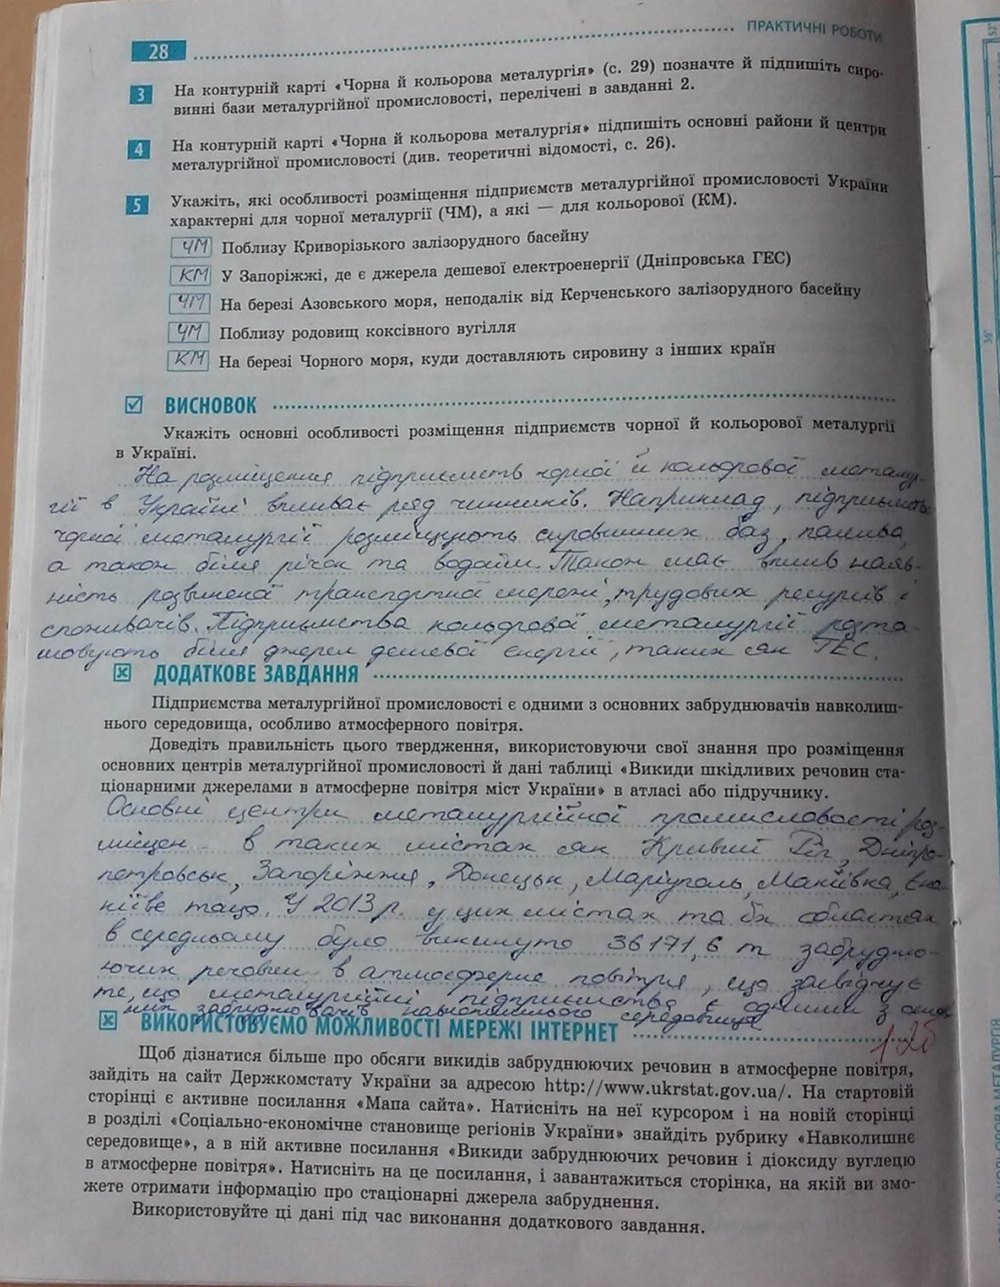 28 ПРАКТИЧНІ РОБОТИ
3 На контурній карті «Чорна й кольорова металургія» (с. 29) позначте й підпишіть сиро-
винні бази металургійної промисловості, перелічені в завданні 2.
4 На контурній карті «Чорна й кольорова металургія» підпишіть основні райони й центри
металургійної промисловості (див. теоретичні відомості, с. 26).
5 Укажіть, які особливості розміщення підприємств металургійної промисловості України
характерні для чорної металургії (ЧМ), а які — для кольорової (КМ).
ЧМ Поблизу Криворізького залізорудного басейну
КМ У Запоріжжі, де є джерела дешевої електроенергії (Дніпровська ГЕС)
ЧМ На березі Азовського моря, неподалік від Керченського залізорудного басейну
ЧМ Поблизу родовищ коксівного вугілля
КМ На березі Чорного моря, куди доставляють сировину з інших країн
ВИСНОВОК
Укажіть основні особливості розміщення підприємств чорної й кольорової металургії
в Україні.
На розміщення підприємств чорної й кольорової металур-
гії в Україні впливає ряд чинників. Наприклад, підприємства
чорної металургії розміщують сировинних баз, палива,
а також біля річок та водойм. Також має вплив наяв-
ність розвиненої транспортної мережі, трудових ресурсів і
споживачів. Підприємства кольорової металургії розта-
шовують біля джерел дешевої енергії, таких як ГЕС.
ДОДАТКОВЕ ЗАВДАННЯ
Підприємства металургійної промисловості є одними з основних забруднювачів навколиш-
нього середовища, особливо атмосферного повітря.
Доведіть правильність цього твердження, використовуючи свої знання про розміщення
основних центрів металургійної промисловості й дані таблиці «Викиди шкідливих речовин ста-
ціонарними джерелами в атмосферне повітря міст України» в атласі або підручнику.
Основні центри металургійної промисловості роз-
міщен в таких містах як Кривий Ріг, Дніпро-
петровськ, Запоріжжя, Донецьк, Маріуполь, Макіївка, Єна-
кієве тощо. У 2013 р. у цих містах та їх областях
в середньому було викинуто 36171,6 т забрудню-
ючих речовин в атмосферне повітря, що засвідчує
те, що металургійні підприємства є одними з основ
них забруднювачів навколишнього середовища
ВИКОРИСТОВУЄМО МОЖЛИВОСТІ МЕРЕЖІ ІНТЕРНЕТ
12б
Щоб дізнатися більше про обсяги викидів забруднюючих речовин в атмосферне повітря,
зайдіть на сайт Держкомстату України за адресою http://www.ukrstat.gov.ua/. На стартовій
сторінці є активне посилання «Мапа сайта». Натисніть на неї курсором і на новій сторінці
в розділі «Соціально-економічне становище регіонів України» знайдіть рубрику «Навколишнє
середовище», а в ній активне посилання «Викиди забруднюючих речовин і діоксиду вуглецю
в атмосферне повітря». Натисніть на це посилання, і завантажиться сторінка, на якій ви змо-
жете отримати інформацію про стаціонарні джерела забруднення.
Використовуйте ці дані під час виконання додаткового завдання.
36°